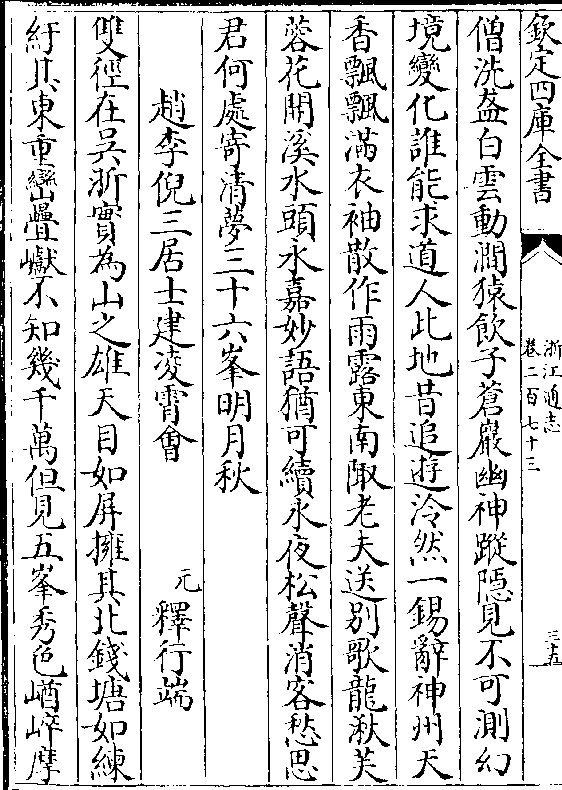 欽定四庫全書
浙江通志
卷二百七十三
三五
僧洗盋白雲動澗猿飲子蒼巖幽神蹤隱見不可測幻
境變化誰能求道人此地昔追遊泠然一錫辭神州天
香飄飄滿衣袖散作雨露東南陬老夫送別歌龍湫芙
蓉花開溪水頭永嘉妙語猶可續永夜松聲消客愁思
君何處寄清夢三十六峯明月秋
趙李倪三居士建凌霄會
元 釋行端
雙徑在吳浙實為山之雄天目如屏擁其北錢塘如練
紆其東重巒疊巘不知幾千萬但見五峯秀色崷崪摩